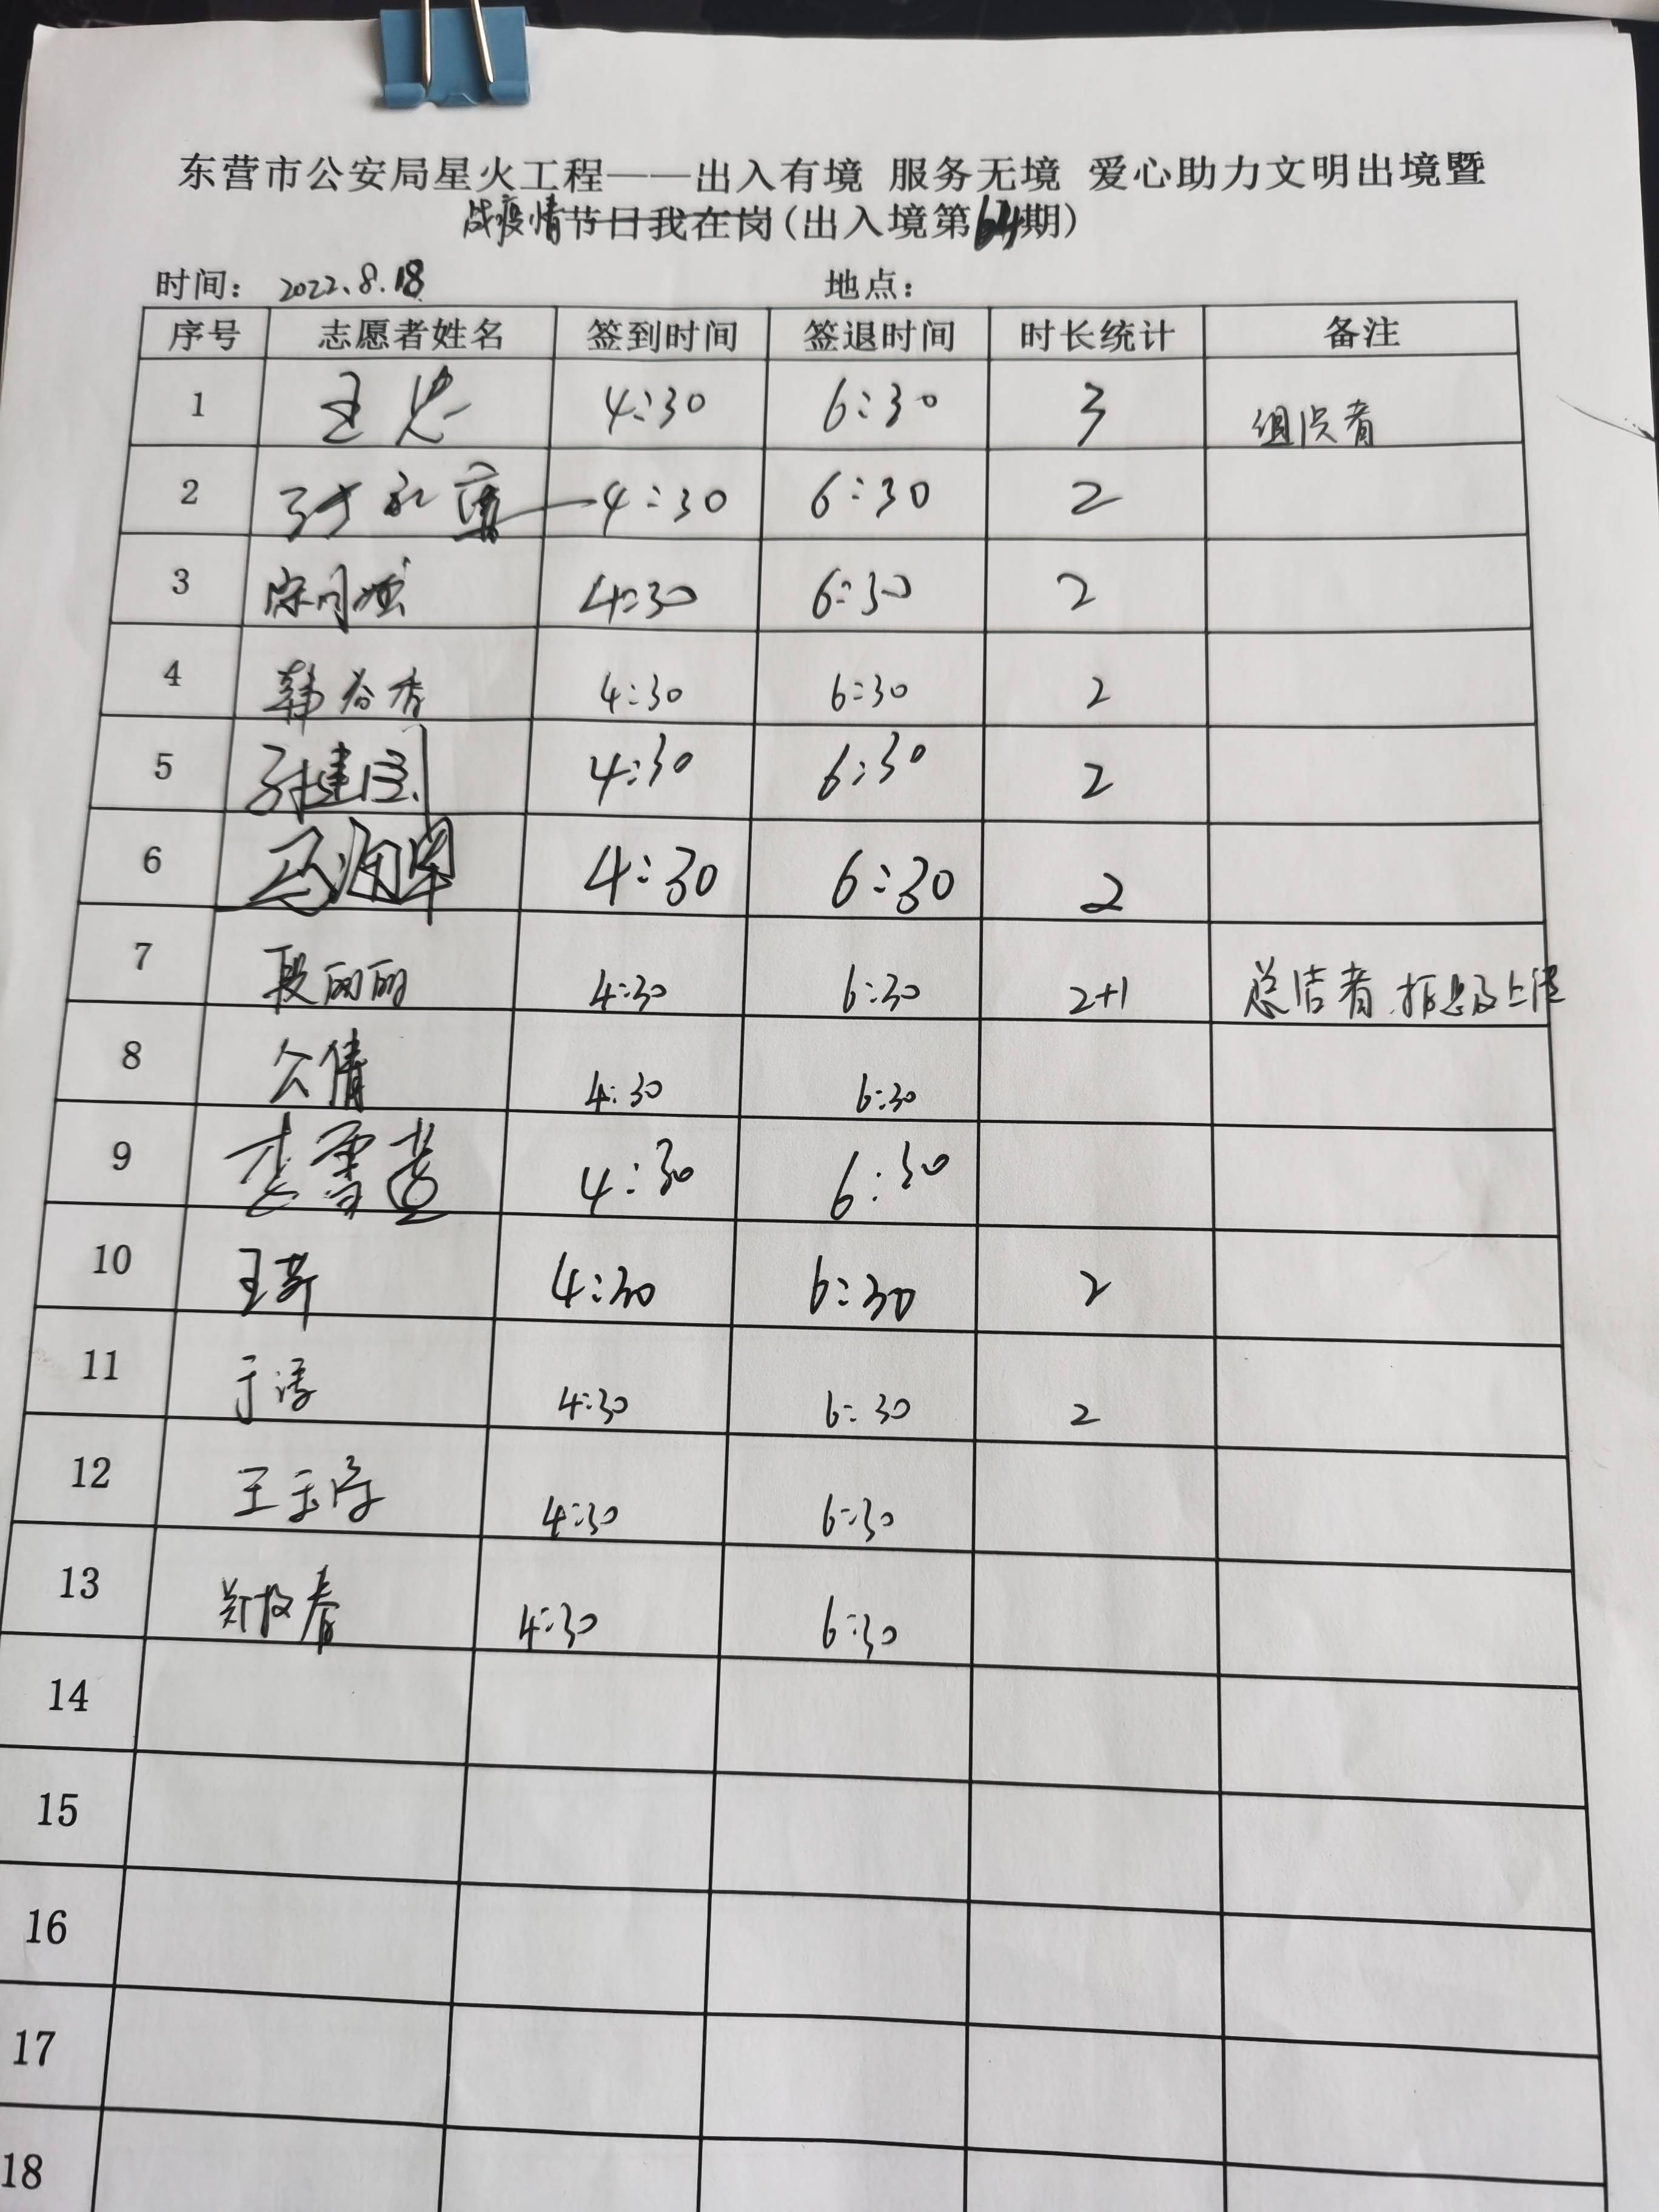 东营市公安局星火工程——出入有境 服务无境 爱心助力文明出境暨
战疫情节日我在岗(出入境第64期)
时间: 2022.8.18 地点:
序号 志愿者姓名 签到时间 签退时间 时长统计 备注
1 4:30 6:30 3 组织者
2 4:30 6:30 2
3 4:30 6:30 2
4 韩谷香 4:30 6:30 2
5 4:30 6:30 2
6 4:30 6:30 2
7 段丽丽 4:30 6:30 2+1 总结者
8 倩 4:30 6:30
9 李雪 4:30 6:30
10 王 4:30 6:30 2
11 于涛 4:30 6:30 2
12 王玉 4:30 6:30
13 郑 春 4:30 6:30
14
15
16
17
18